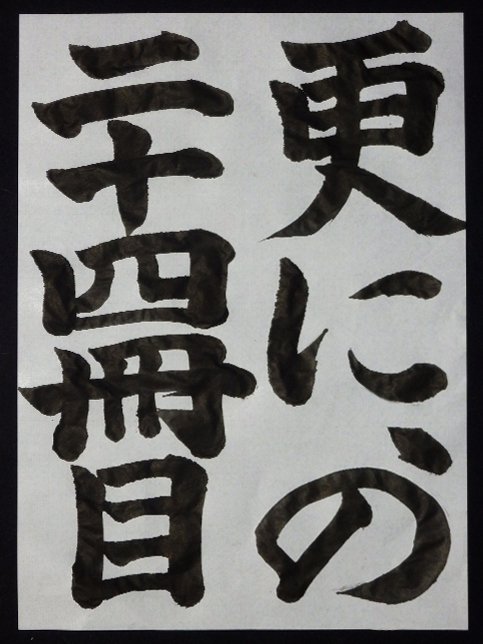 更に、の
二十四冊目